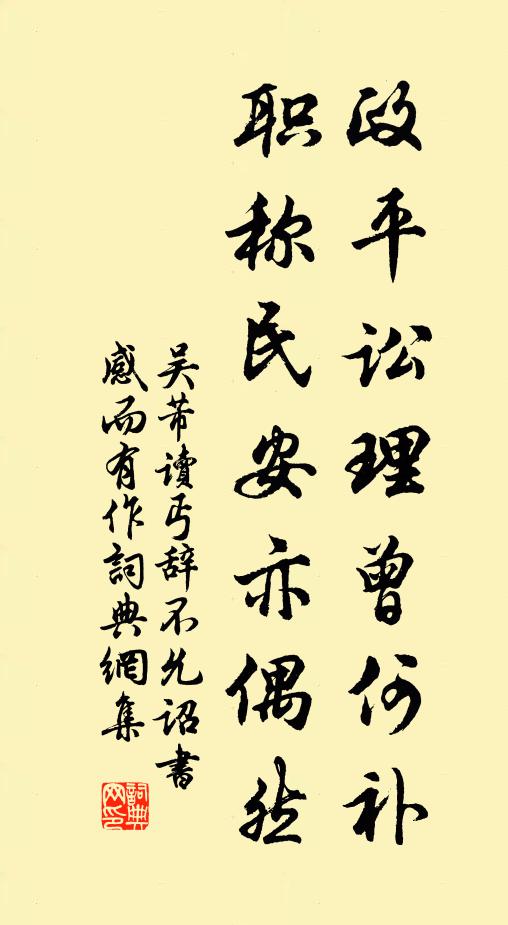 政平讼理曾何补
职称民安亦偶然
吴芾读丐辞不允诏書
感而有作詞典網集
詞典
网印